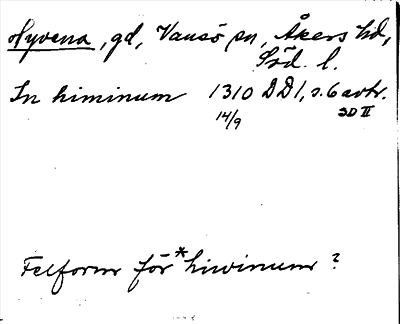 Hyvena, gd, Vansö sn, Åkers hd,
Söd. l.
In himinum 1310 DD1, s. 6 avkr.
14/9 SD II
Felform för *hivinum?